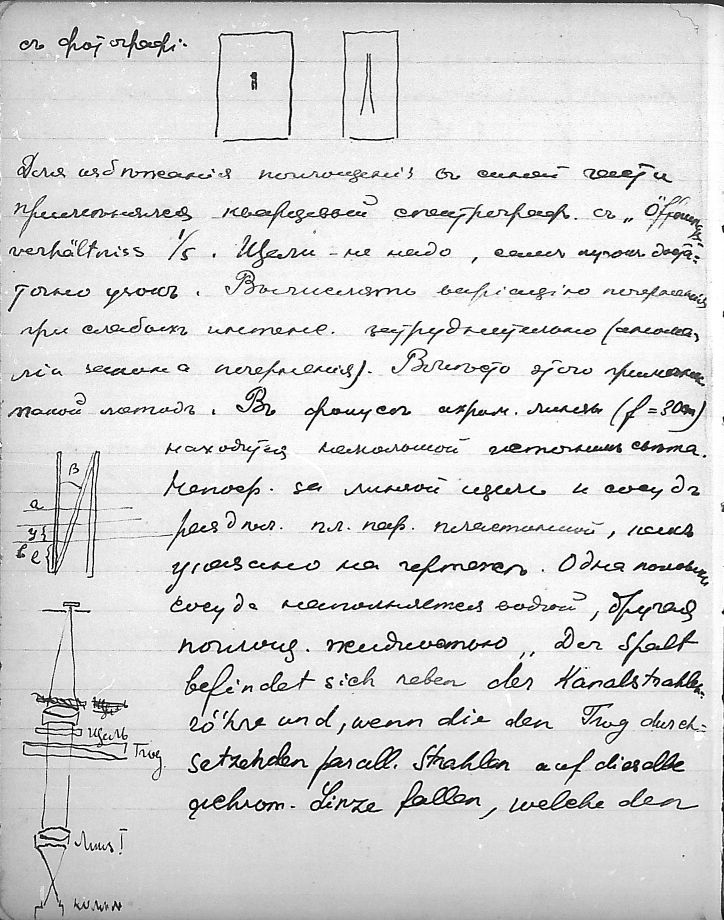 съ фотографі.
Для избѣжанія поглощенія въ синей части
примѣнялся кварцевый спектрографъ съ „Öffnungs-
verhältniss 1/5. Щели - не надо, самъ пучокъ доста-
точно узокъ. Вычислять варіацію почернѣнія
при слабыхъ интенс. затруднительно (анома-
лія закона почернѣнія). Вмѣсто этого примѣнен
такой методъ. Въ фокусѣ ахром. линзы (f = 30cm)
находится небольшой источникъ свѣта.
β
Непоср. за линзой щель и сосудъ
a
раздѣл. пл. пар. пластинкой, какъ
y
b
l
указано на чертежѣ. Одна половина
сосуда наполняется водой, другая
поглощ. жидкостью „Der Spalt
befindet sich neben der Kanalstrahlen-
röhre und, wenn die den Trog durch-
Щель
setzenden parall. Strahlen auf dieselbe
Trog
achrom. Linze fallen, welche den
Линз I